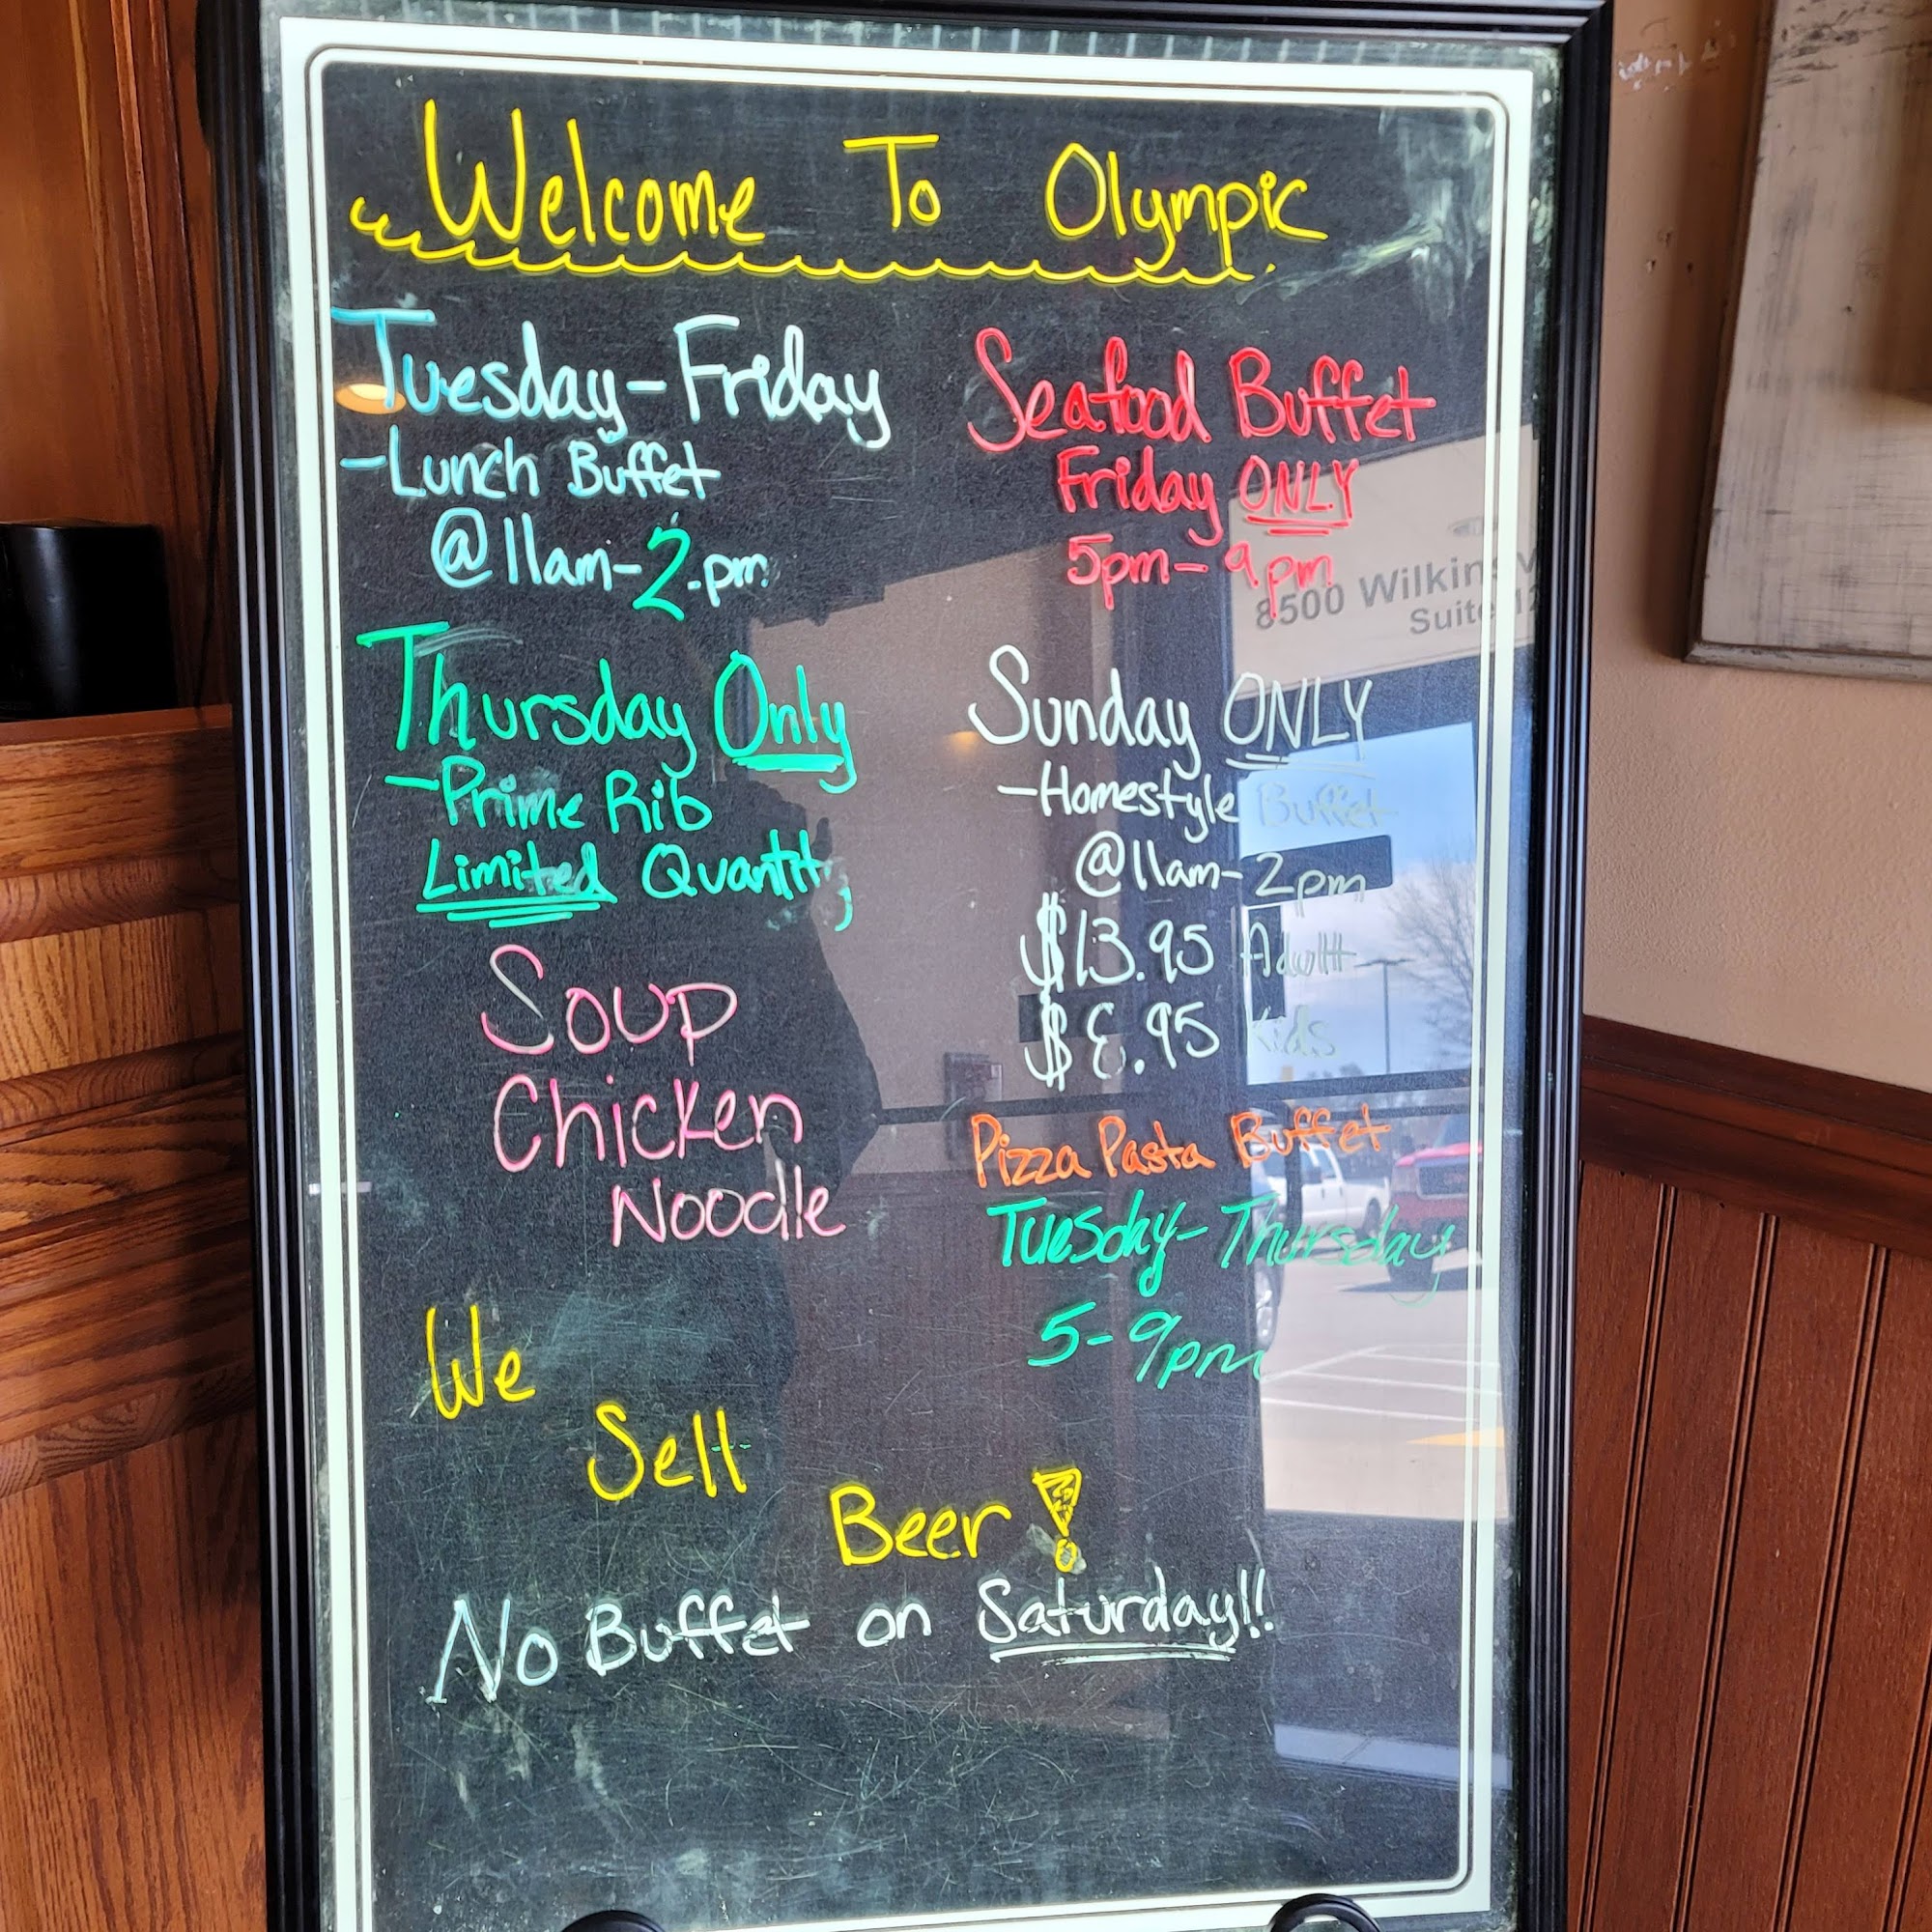 Welcome To Olympic
Tuesday-Friday
-Lunch Buffet
@11am-2pm
Thursday Only
-Prime Rib
Limited Quantity
Soup
Chicken
Noodle
Seafood Buffet
Friday ONLY
5pm-9pm
8500 Wilkins
Suite 12
Sunday ONLY
-Homestyle Buffet
@11am-2pm
$13.95 Adult
Kids
Pizza Pasta Buffet
Tuesday-Thursday
5-9pm
We
Sell
Beer!
No Buffet on Saturday!!